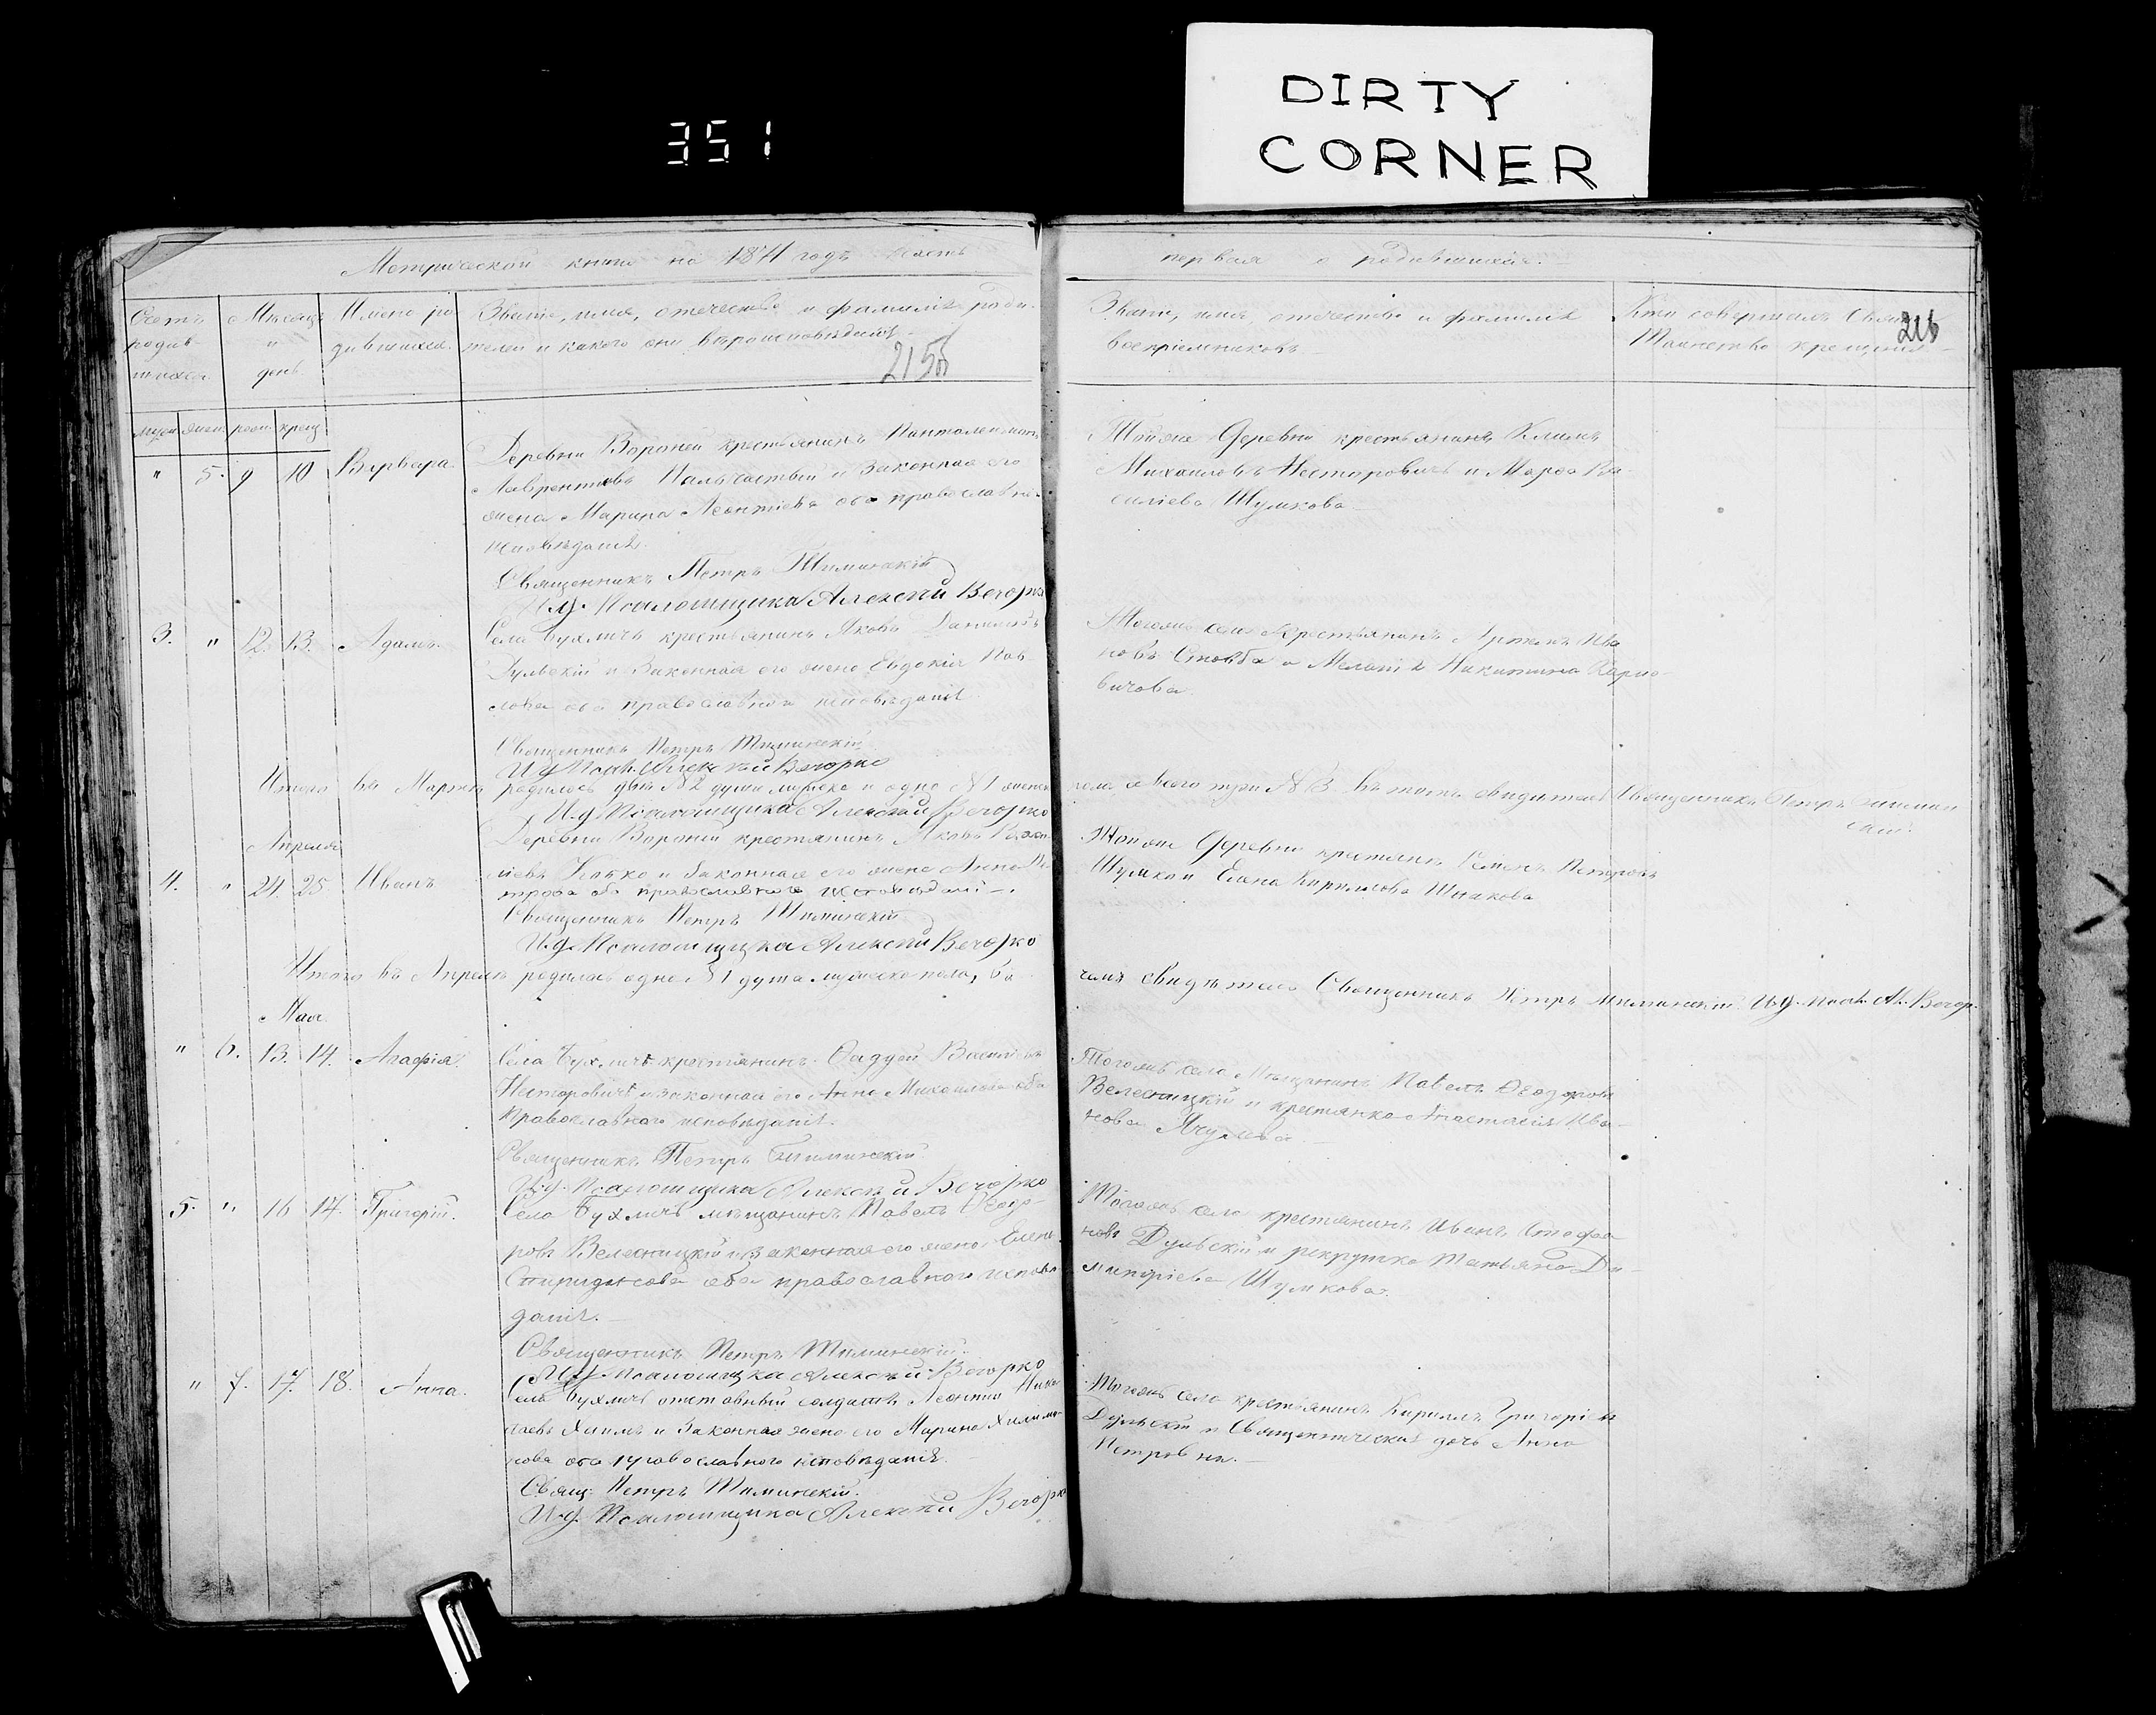 351
DIRTY
CORNER
Метрической книги на 1871 годъ часть
первая о родившихся.
Счетъ родив-шихся
Мѣсяцъ и день
Имена ро-дившихся.
Званіе, имя, отечество и фамилія роди-
телей и какого они вѣроисповѣданія.
215б
Званіе, имя, отечество и фамилія
воспріемниковъ
Кто совершалъ Свят.
Таинство крещенія
216
муж. жен. рожд. крещ.
" 5. 9 10 Варвара.
Деревни Вороней крестьянинъ Пантелеймонъ
Лаврентіевъ и законная его
жена Марина Леонтіева оба православнаго
исповѣданія.
Священникъ Петръ
И.д. Псаломщика Алексѣй Вечорко
Тойже Деревни крестьянинъ Климъ
Михаиловъ Несторовичъ и Марѳа Ва-
силіева Шумкова
3. " 12. 13. Адамъ.
Села Бухличъ крестьянинъ Яковъ Даниловъ
Дульскій и Законная его жена Евдокія Пав-
лова оба православнаго исповѣданія
Священникъ Петръ
И.д. Псал. Алексѣй Вечорко
Тогожъ села Крестьянинъ Артемъ Ива-
новъ Стовба и Меланія Никитина Карпо-
вичова.
Итого въ Мартѣ родилось двѣ №2 души мужеска и одна №1 женска
пола а всего три №3. въ томъ свидѣтель Священникъ Петръ
И.д. Псаломщика Алексѣй Вечорко
Апрель
4. " 24. 25. Иванъ
Деревни Вороней крестянинъ Яковъ
и законная его жена Анна Пе-
трова оба православнаго исповѣданія.
Священникъ Петръ
И.д. Псаломщика Алексѣй Вечорко
Тойже Деревни крестянинъ Семенъ Петровъ
Шумко и Елена Кириллова Шпакова
Итого въ Апрелѣ родилась одна №1 душа мужеска пола, въ
чемъ свидѣтель Священникъ Петръ И.д. Псал. Ал. Вечор.
Мая.
" 6. 13. 14. Агафія.
Села Бухличъ крестянинъ Фаддей Василіевъ
Несторовичъ и законная его Анна Михаилова оба
Православнаго исповѣданія.
Священникъ Петръ
И.д. Псаломщика Алексѣй Вечорко
Тогожъ села Мѣщанинъ Павелъ Ѳеодоровъ
Велесницкій и крестянка Анастасія Ива-
нова
5. " 16 17. Григорій.
Села Бухличъ мѣщанинъ Павелъ Ѳеодо-
ровъ Велесницкій и законная его жена Елена
Спиридонова оба православнаго исповѣ-
данія.
Священникъ Петръ
И.д. Псаломщика Алексѣй Вечорко
Тогожъ села крестянинъ Иванъ Стефа-
новъ Дульскій и рекрутка Татьяна Ди-
митріева Шумкова.
" 7. 17. 18. Анна.
Села Бухличъ отставный солдатъ Леонтій
и Законная жена его Марина
оба православнаго исповѣданія.
Свящ. Петръ
И.д. Псаломщика Алексѣй Вечорко
Тогожъ села крестьянинъ Кириллъ Григоріевъ
Дульскій и Священническая дочь Анна
Петровна.